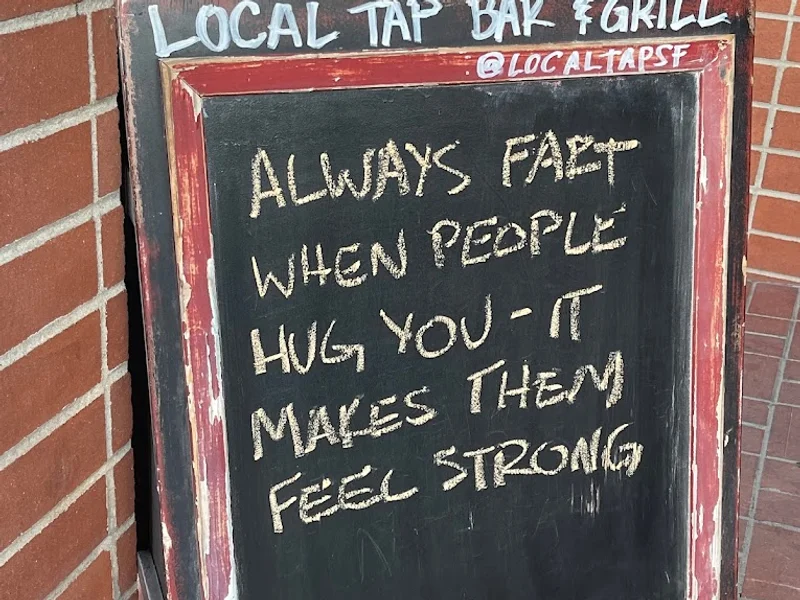 LOCAL TAP BAR & GRILL
@LOCALTAPSF
ALWAYS FART
WHEN PEOPLE
HUG YOU - IT
MAKES THEM
FEEL STRONG